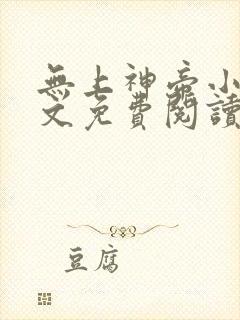 無上神帝小
文免費閱讀
豆腐